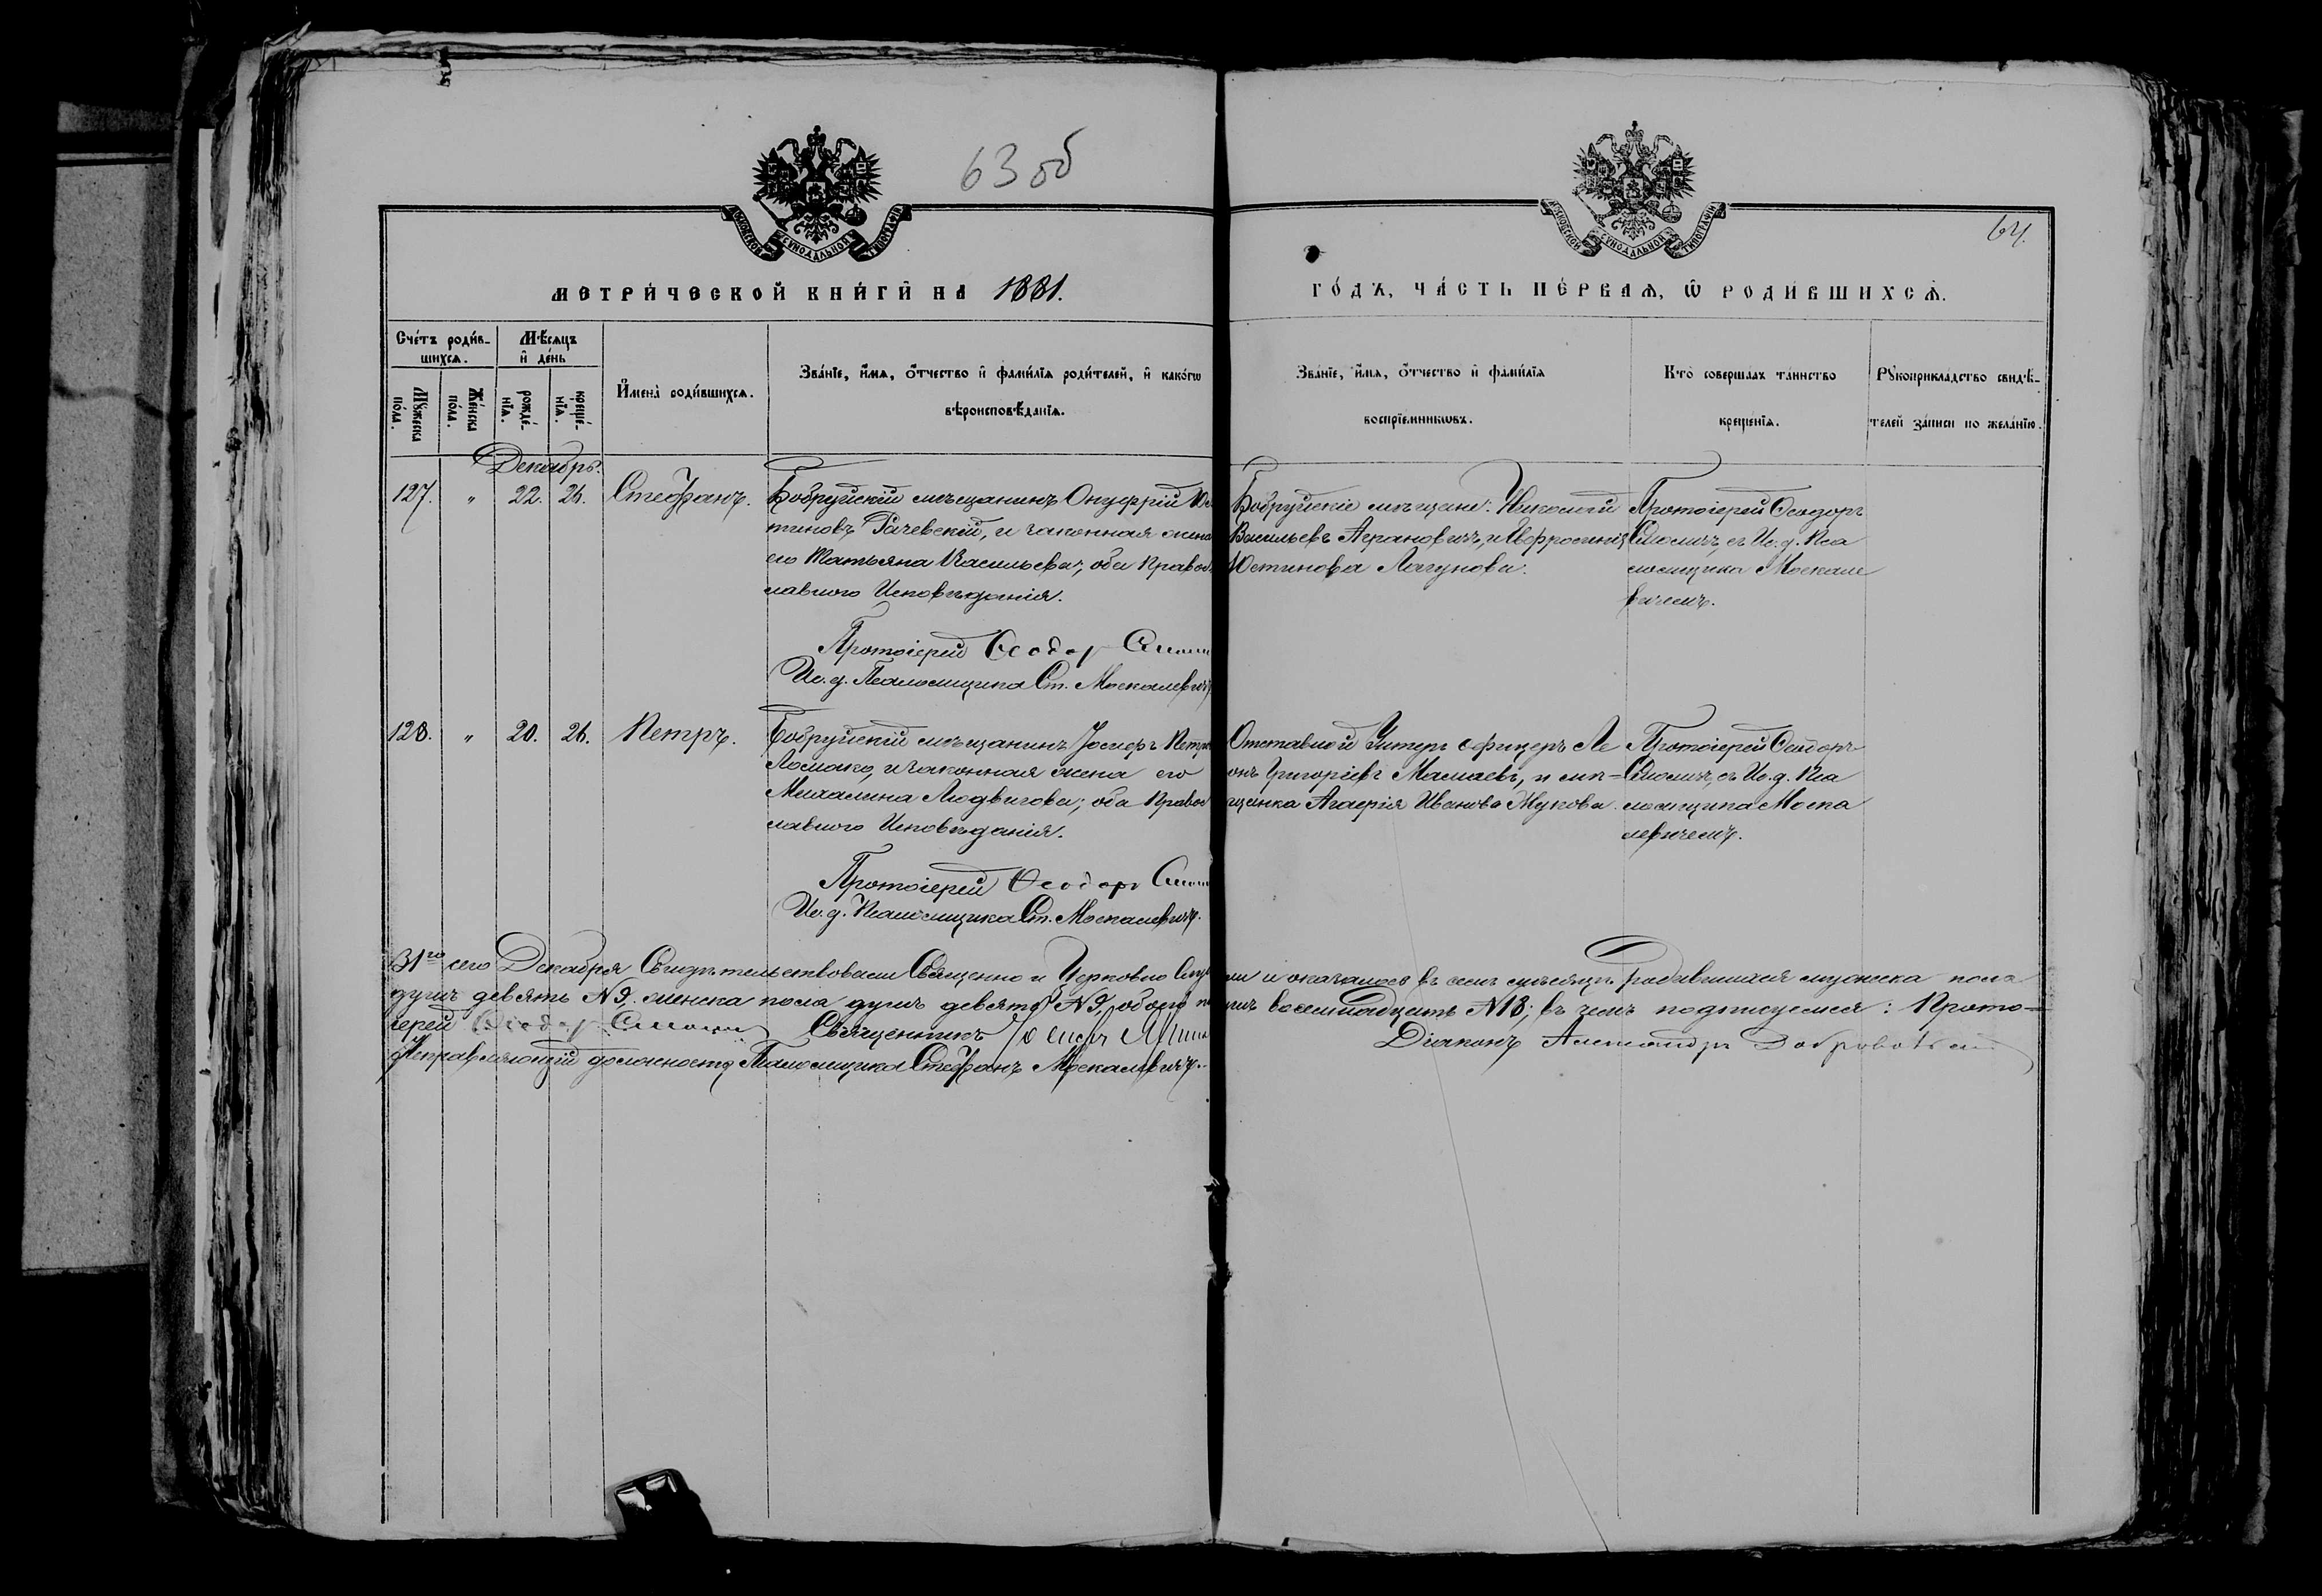 63 об
64.
МОСКОВСКОЙ СѴНОДАЛЬНОЙ ТИПОГРАФІИ
МОСКОВСКОЙ СѴНОДАЛЬНОЙ ТИПОГРАФІИ
МЕТРИ́ЧЕСКОЙ КНИ́ГИ НА 1881.
ГО́ДЪ, ЧА́СТЬ ПЕ́РВАѦ, Ѡ РОДИ́ВШИХСѦ.
Сче́тъ роди́в-
шихсѧ.
Мꙋ́жеска по́ла.
Же́нска по́ла.
Мѣ́сѧцъ
и҆ де́нь
рожде́-нїѧ.
креще́-нїѧ.
И҆мена̀ роди́вшихсѧ.
Зва́нїе, и҆́мѧ, о҆́тчество и҆ фами́лїѧ роди́телей, и҆ како́гѡ
вѣроисповѣ́данїѧ.
Зва́нїе, и҆́мѧ, о҆́тчество и҆ фами́лїѧ
воспрїе́мникѡвъ.
Кто̀ соверша́лъ та́инство
креще́нїѧ.
Рꙋкоприкла́дство свидѣ́-
телей за́писи по жела́нїю.
Декабрь.
127. " 22. 26. Стефанъ.
Бобруйскій мѣщанинъ Онуфрій Юс
тиновъ Рачевскій, и законная жена
его Татьяна Васильева, оба Правос
лавного Исповѣданія.
Протоіерей Ѳеодор
Ис. д. Псаломщика Ст. Москалевичъ
Бобруйскіе мѣщане: Николай
Васильевъ Аграновичъ, и Ефросинія
Юстинова Лагунова.
Протоіерей Ѳеодоръ
съ Ис. д. Пса
ломщика Москале
вичемъ.
128. " 20. 26. Петръ.
Бобруйскій мѣщанинъ Іосифъ Петро
Ломако, и законная жена его
Михалина Людвигова; оба Правос
лавного Исповѣданія.
Протоіерей Ѳеодоръ
Ис. д. Псаломщика Ст. Москалевичъ.
Отставной Унтеръ офицеръ Ле
онъ Григоріевъ Мамаевъ, и мѣ=
щанка Агаѳія Иванова Жукова.
Протоіерей Ѳеодоръ
съ Ис. д. Пса
ломщика Моска
левичемъ.
31го сего Декабря Свидѣтельствовали Священно и Церковно Слу ли и оказалось въ семъ мѣсяцѣ родившихся мужеска пола
душъ девять №9, женска пола душъ девять №9, обоего по душъ восемнадцать №18; въ чемъ подписуемся: Прото=
іерей Ѳеодор Священникъ Діаконъ Александръ
Исправляющій должность Псаломщика Стефанъ Москалевичъ.